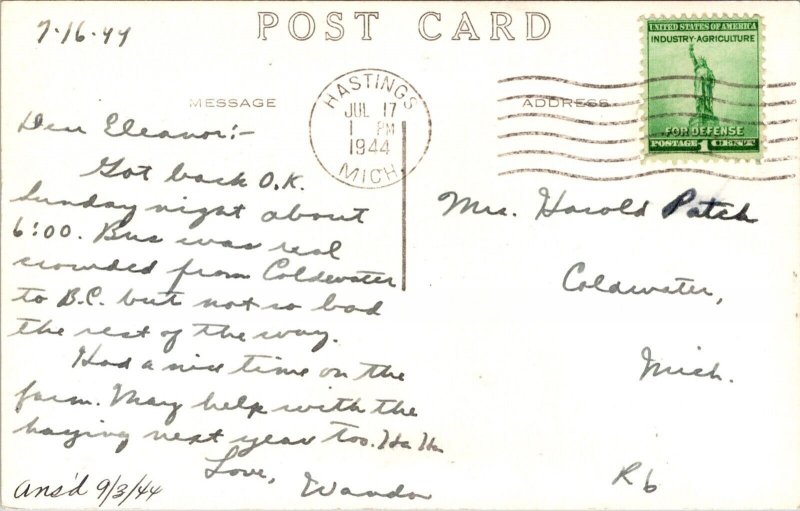 7-16-44
POST CARD
UNITED STATES OF AMERICA
INDUSTRY-AGRICULTURE
FOR DEFENSE
POSTAGE 1 CENT
HASTINGS
JUL 17
1 PM
1944
MICH.
MESSAGE
ADDRESS
Dear Eleanor:-
Got back O.K.
Sunday night about
6:00. Bus was real
crowded from Coldewater
to B.C. but not so bad
the rest of the way.
Had a nice time on the
farm. May help with the
haying next year too. Ha Ha
Love,
Wanda
Ans'd 9/3/44
Mrs. Harold Patch
Coldwater,
Mich.
R 6